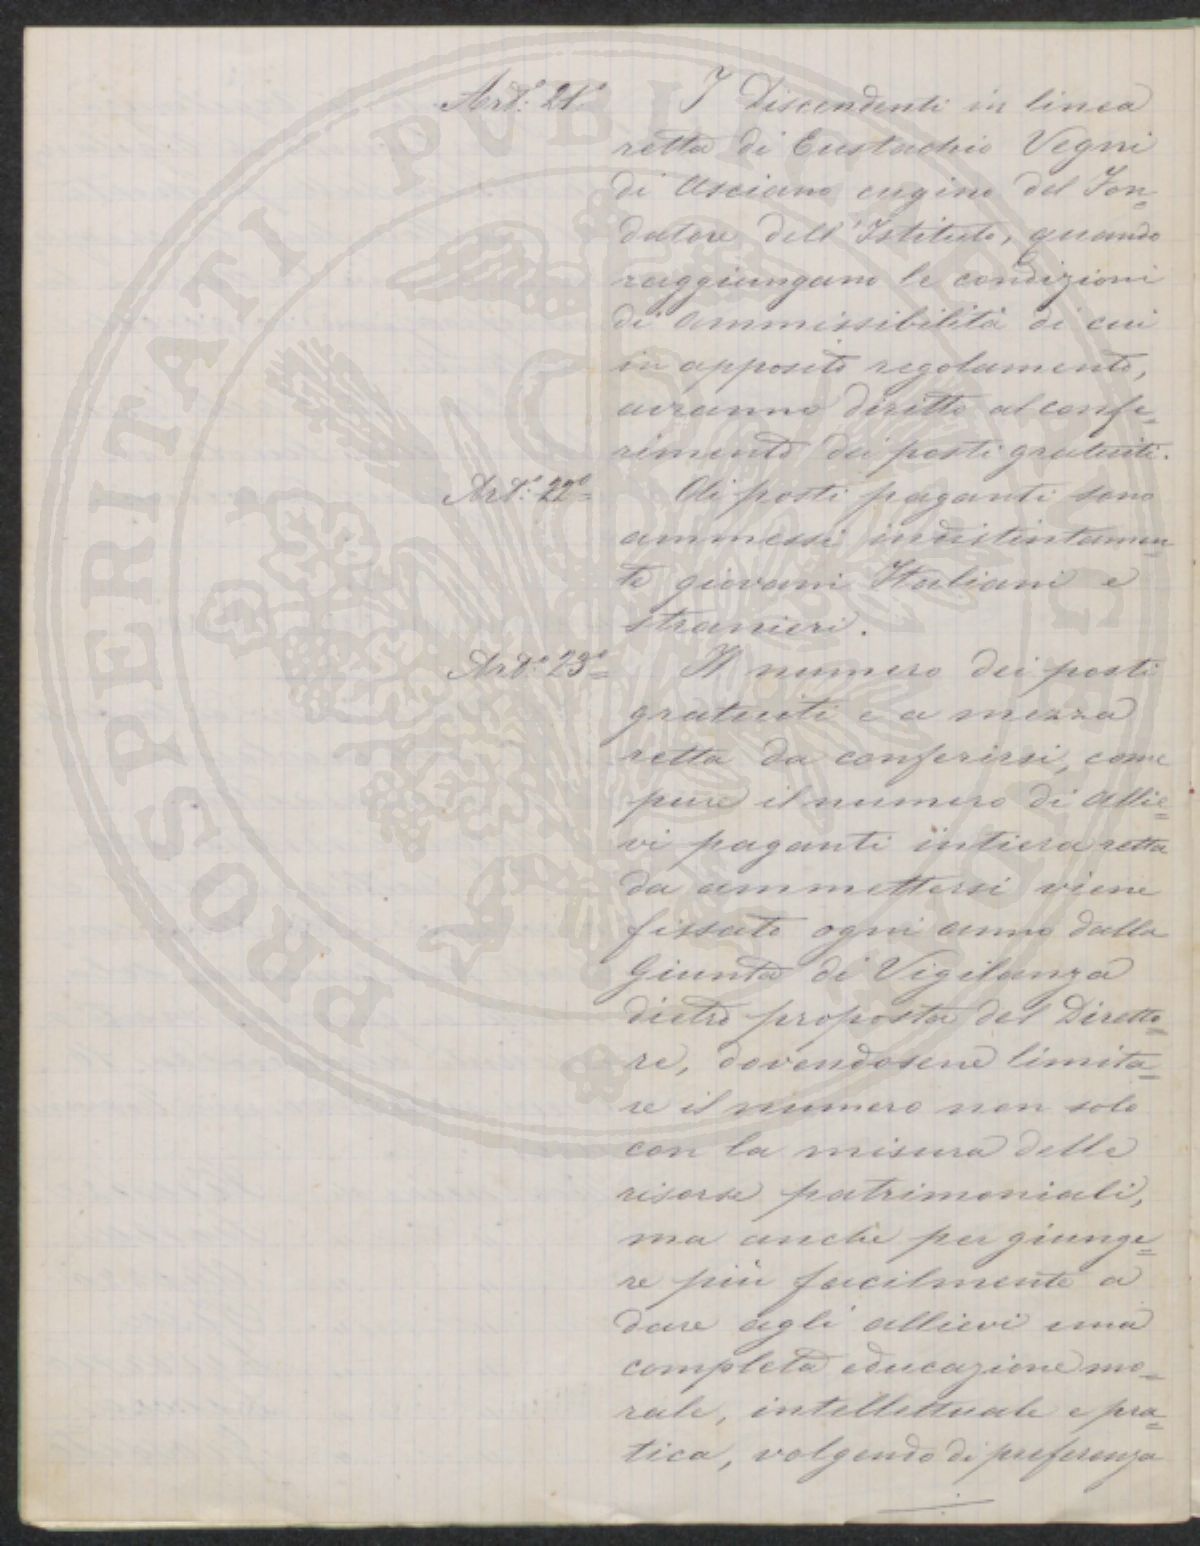 Art.° 21° I Discendenti in linea
retta di Eustachio Vegni
di Asciano cugino del Fon=
datore dell'Istituto, quando
raggiungano le condizioni
di ammissibilità di cui
in apposito regolamento,
avranno diritto al confe=
rimento dei posti gratuiti.
Art.° 22°= Ai posti paganti sono
ammessi indistintamen=
te giovani Italiani e
stranieri.
Art.° 23°= Il numero dei posti
gratuiti e a mezza
retta da conferirsi, come
pure il numero di allie=
vi paganti intiera retta
da ammettersi viene
fissato ogni anno dalla
Giunta di Vigilanza
dietro proposta del Diretto=
re, dovendosene limita=
re il numero non solo
con la misura delle
risorse patrimoniali,
ma anche per giunge=
re più facilmente a
dare agli allievi una
completa educazione mo=
rale, intellettuale e pra=
tica, volgendo di preferenza
PROSPERITATI PUBLICAE